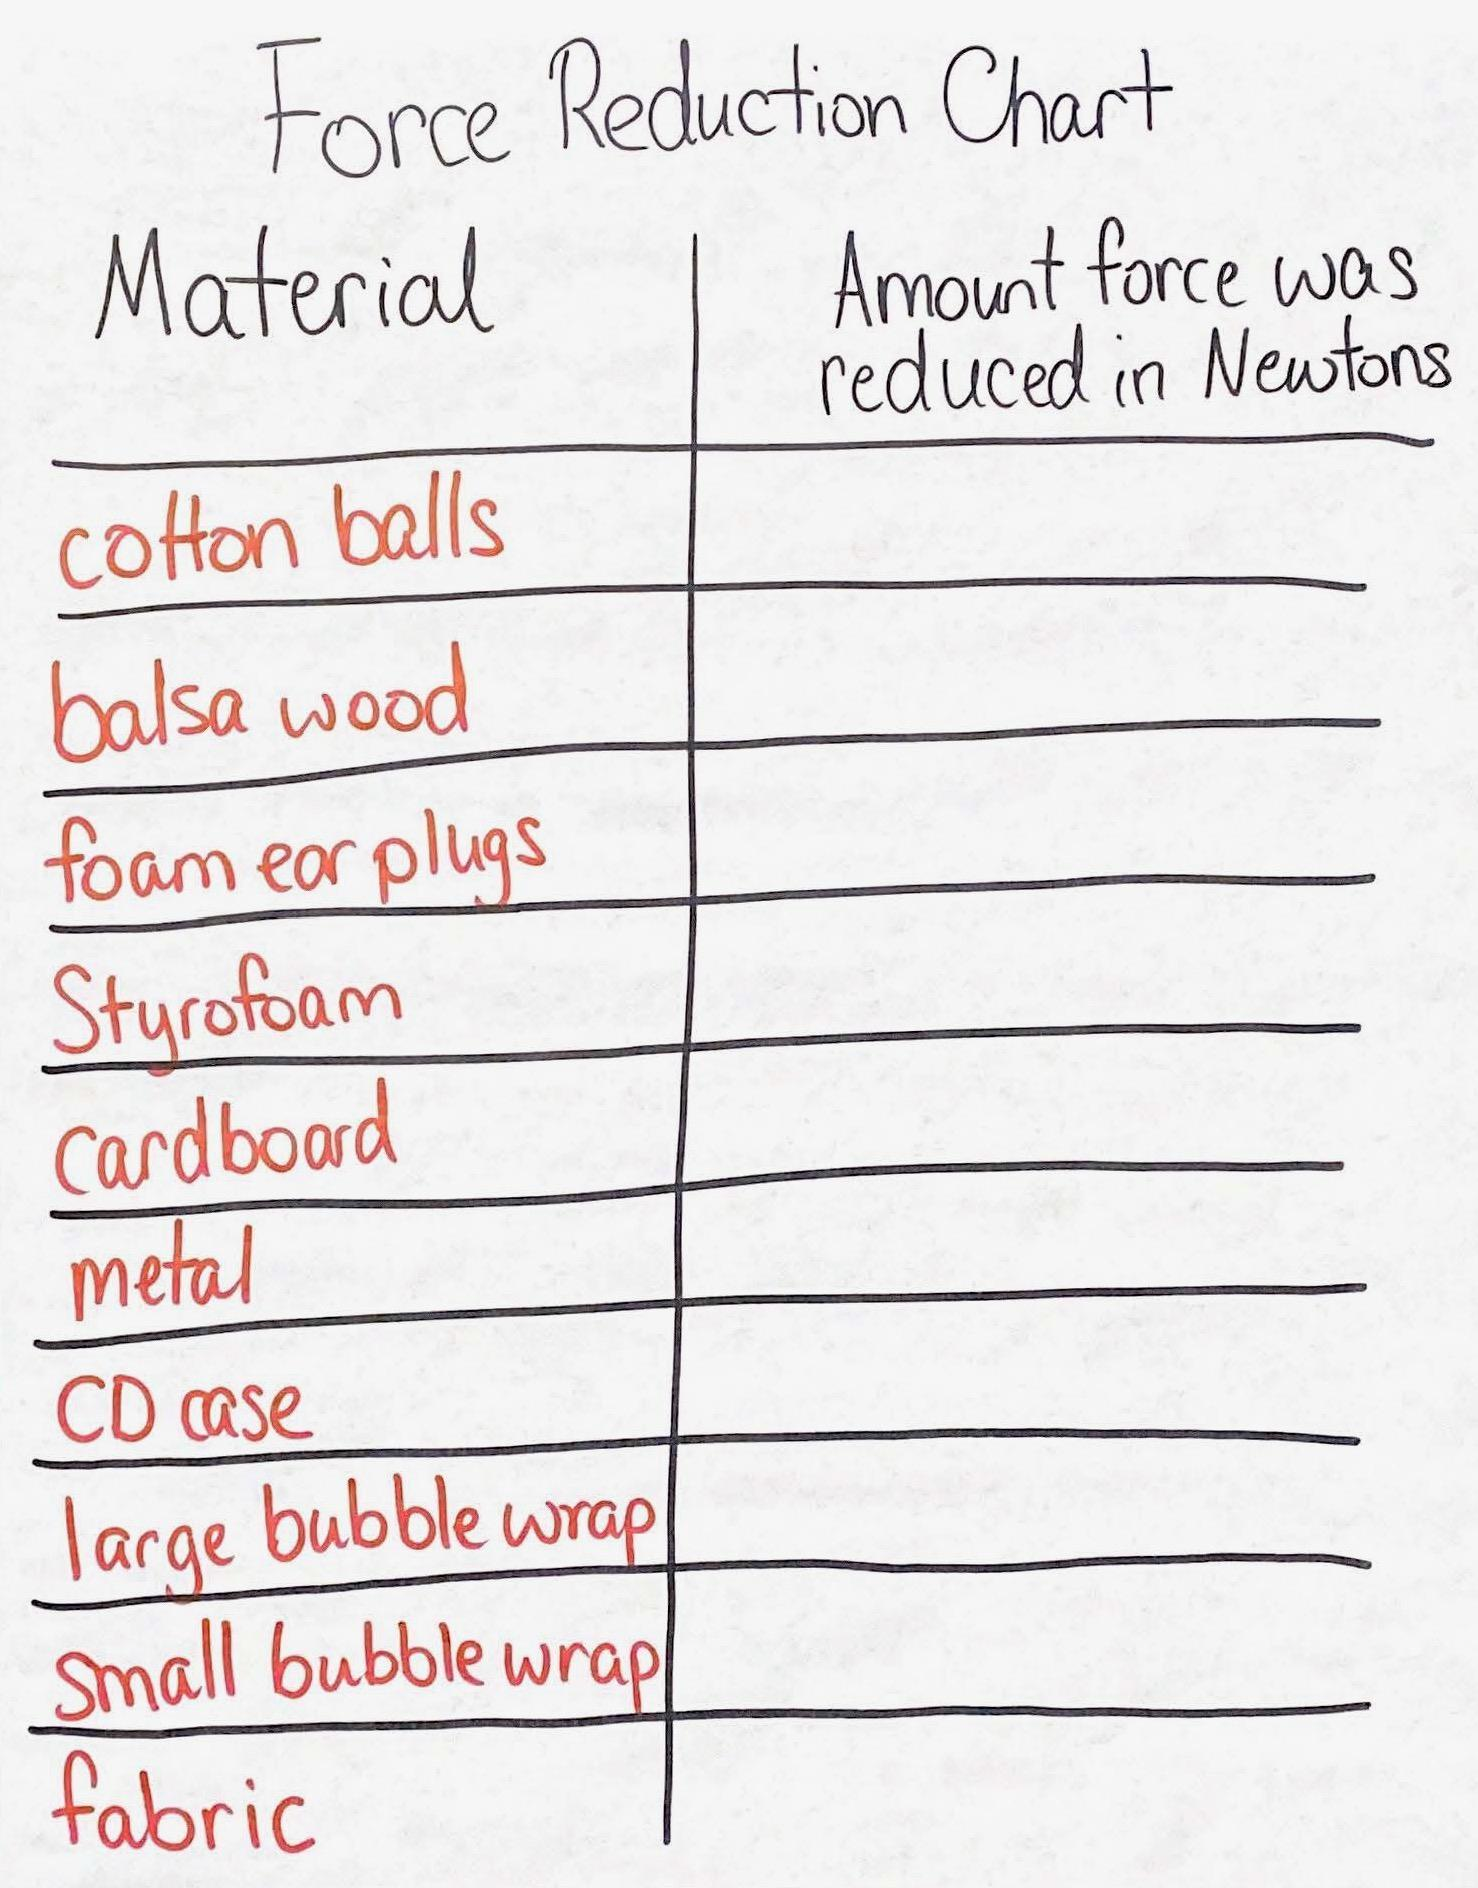 Force Reduction Chart
Material
Amount force was
reduced in Newtons
cotton balls
balsa wood
foam ear plugs
Styrofoam
cardboard
metal
CD case
large bubble wrap
small bubble wrap
fabric